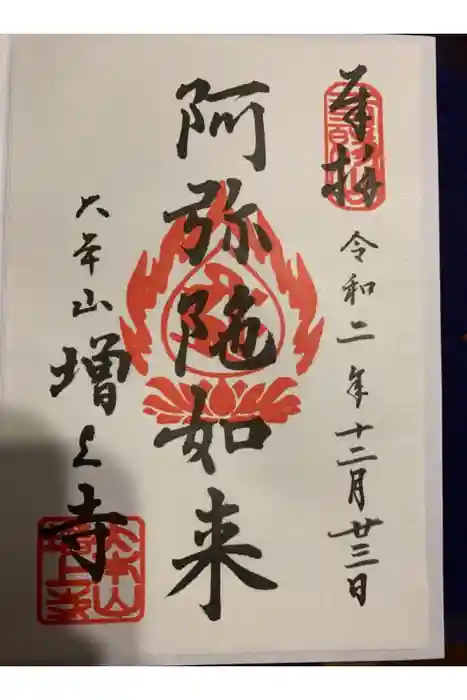 奉拝
令和二年十二月廿三日
阿弥陀如来
大本山増上寺
大本山
増上寺